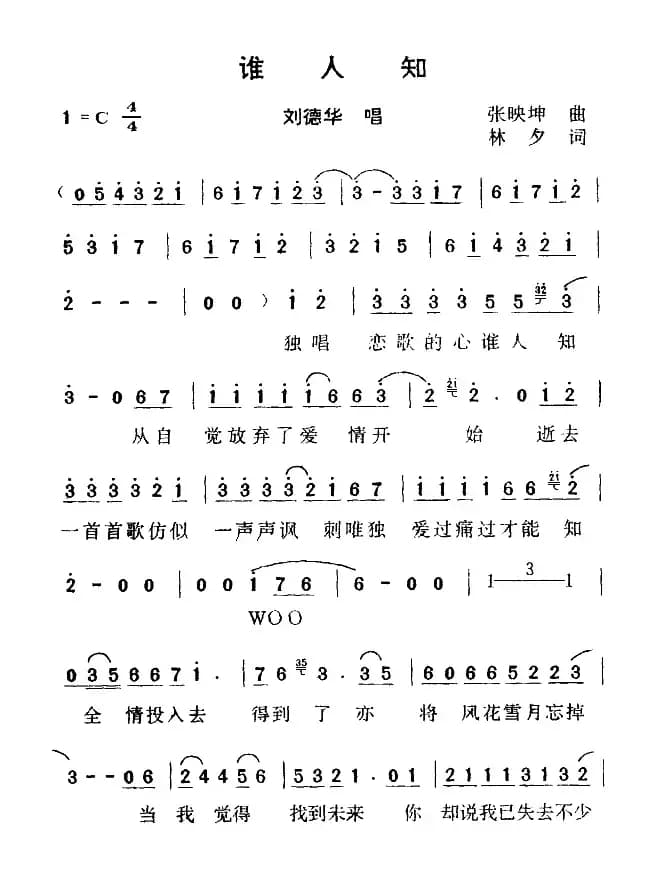 谁 人 知
1 = C 4/4 刘德华 唱 张映坤 曲
林 夕 词
( 0 5 4 3 2 1 | 6 1 7 1 2 3 | 3 - 3 3 1 7 | 6 1 7 1 2 |
5 3 1 7 | 6 1 7 1 2 | 3 2 1 5 | 6 1 4 3 2 1 |
2 - - - | 0 0 ) 1 2 | 3 3 3 3 5 5 32 3 |
独唱 恋歌的心谁人 知
3 - 0 6 7 | 1 1 1 1 1 6 6 3 | 2 21 2 . 0 1 2 |
从自 觉放弃了爱 情开 始 逝去
3 3 3 3 2 1 | 3 3 3 3 2 1 6 7 | 1 1 1 1 6 6 21 2 |
一首首歌仿似 一声声讽 刺唯独 爱过痛过才能 知
2 - 0 0 | 0 0 1 7 6 | 6 - 0 0 | 1 3 1 |
WOO
0 3 5 6 6 7 1 . | 7 6 35 3 . 3 5 | 6 0 6 6 5 2 2 3 |
全 情投入去 得到 了 亦 将 风花雪月忘掉
3 - - 0 6 | 2 4 4 5 6 | 5 3 2 1 . 0 1 | 2 1 1 1 3 1 3 2 |
当我 觉得 找到未来 你 却说我已失去不少